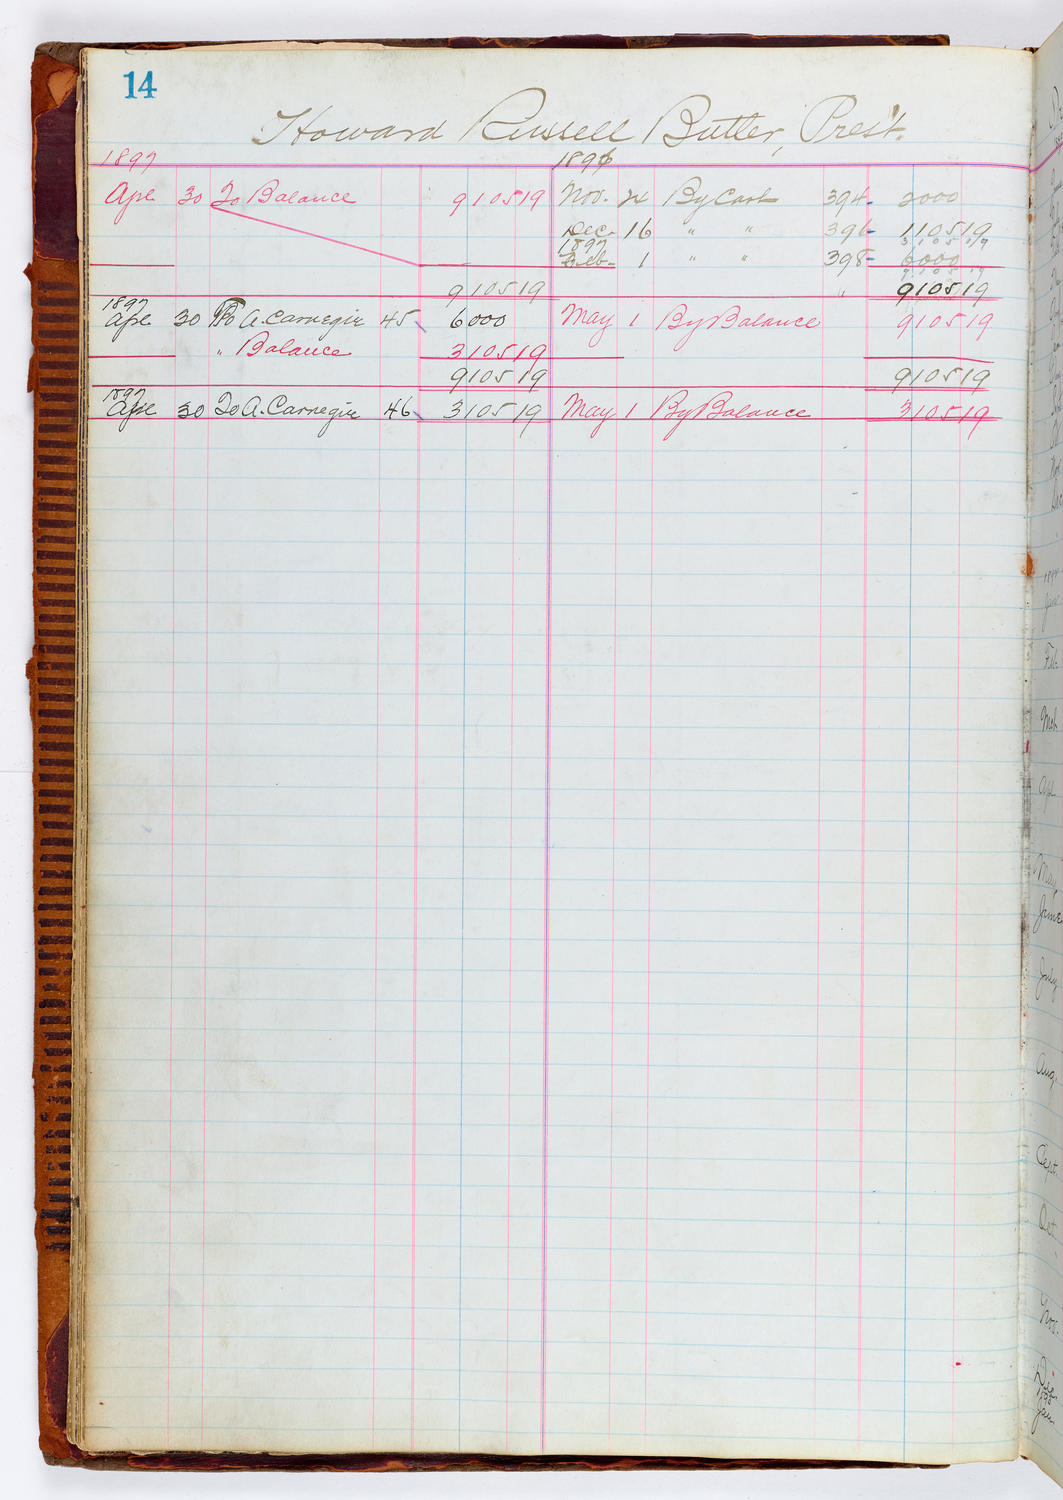 14
Howard Russell Butler, Pres't.
1897 1896
Apr 30 To Balance 9105 19 Nov. 24 By Cash 394 2000
Dec. 16 " " 396 1105 19
3105 19
1897
Feb. 1 " " 398 6000
9105 19
9105 19 " 9105 19
1897
Apr 30 To A. Carnegie 45 6000 May 1 By Balance 9105 19
" Balance 3105 19
9105 19 9105 19
1897
Apr 30 To A. Carnegie 46 3105 19 May 1 By Balance 3105 19
Feb.
May
June
July
Aug.
Sept.
Oct.
Nov.
Dec.
Jan.